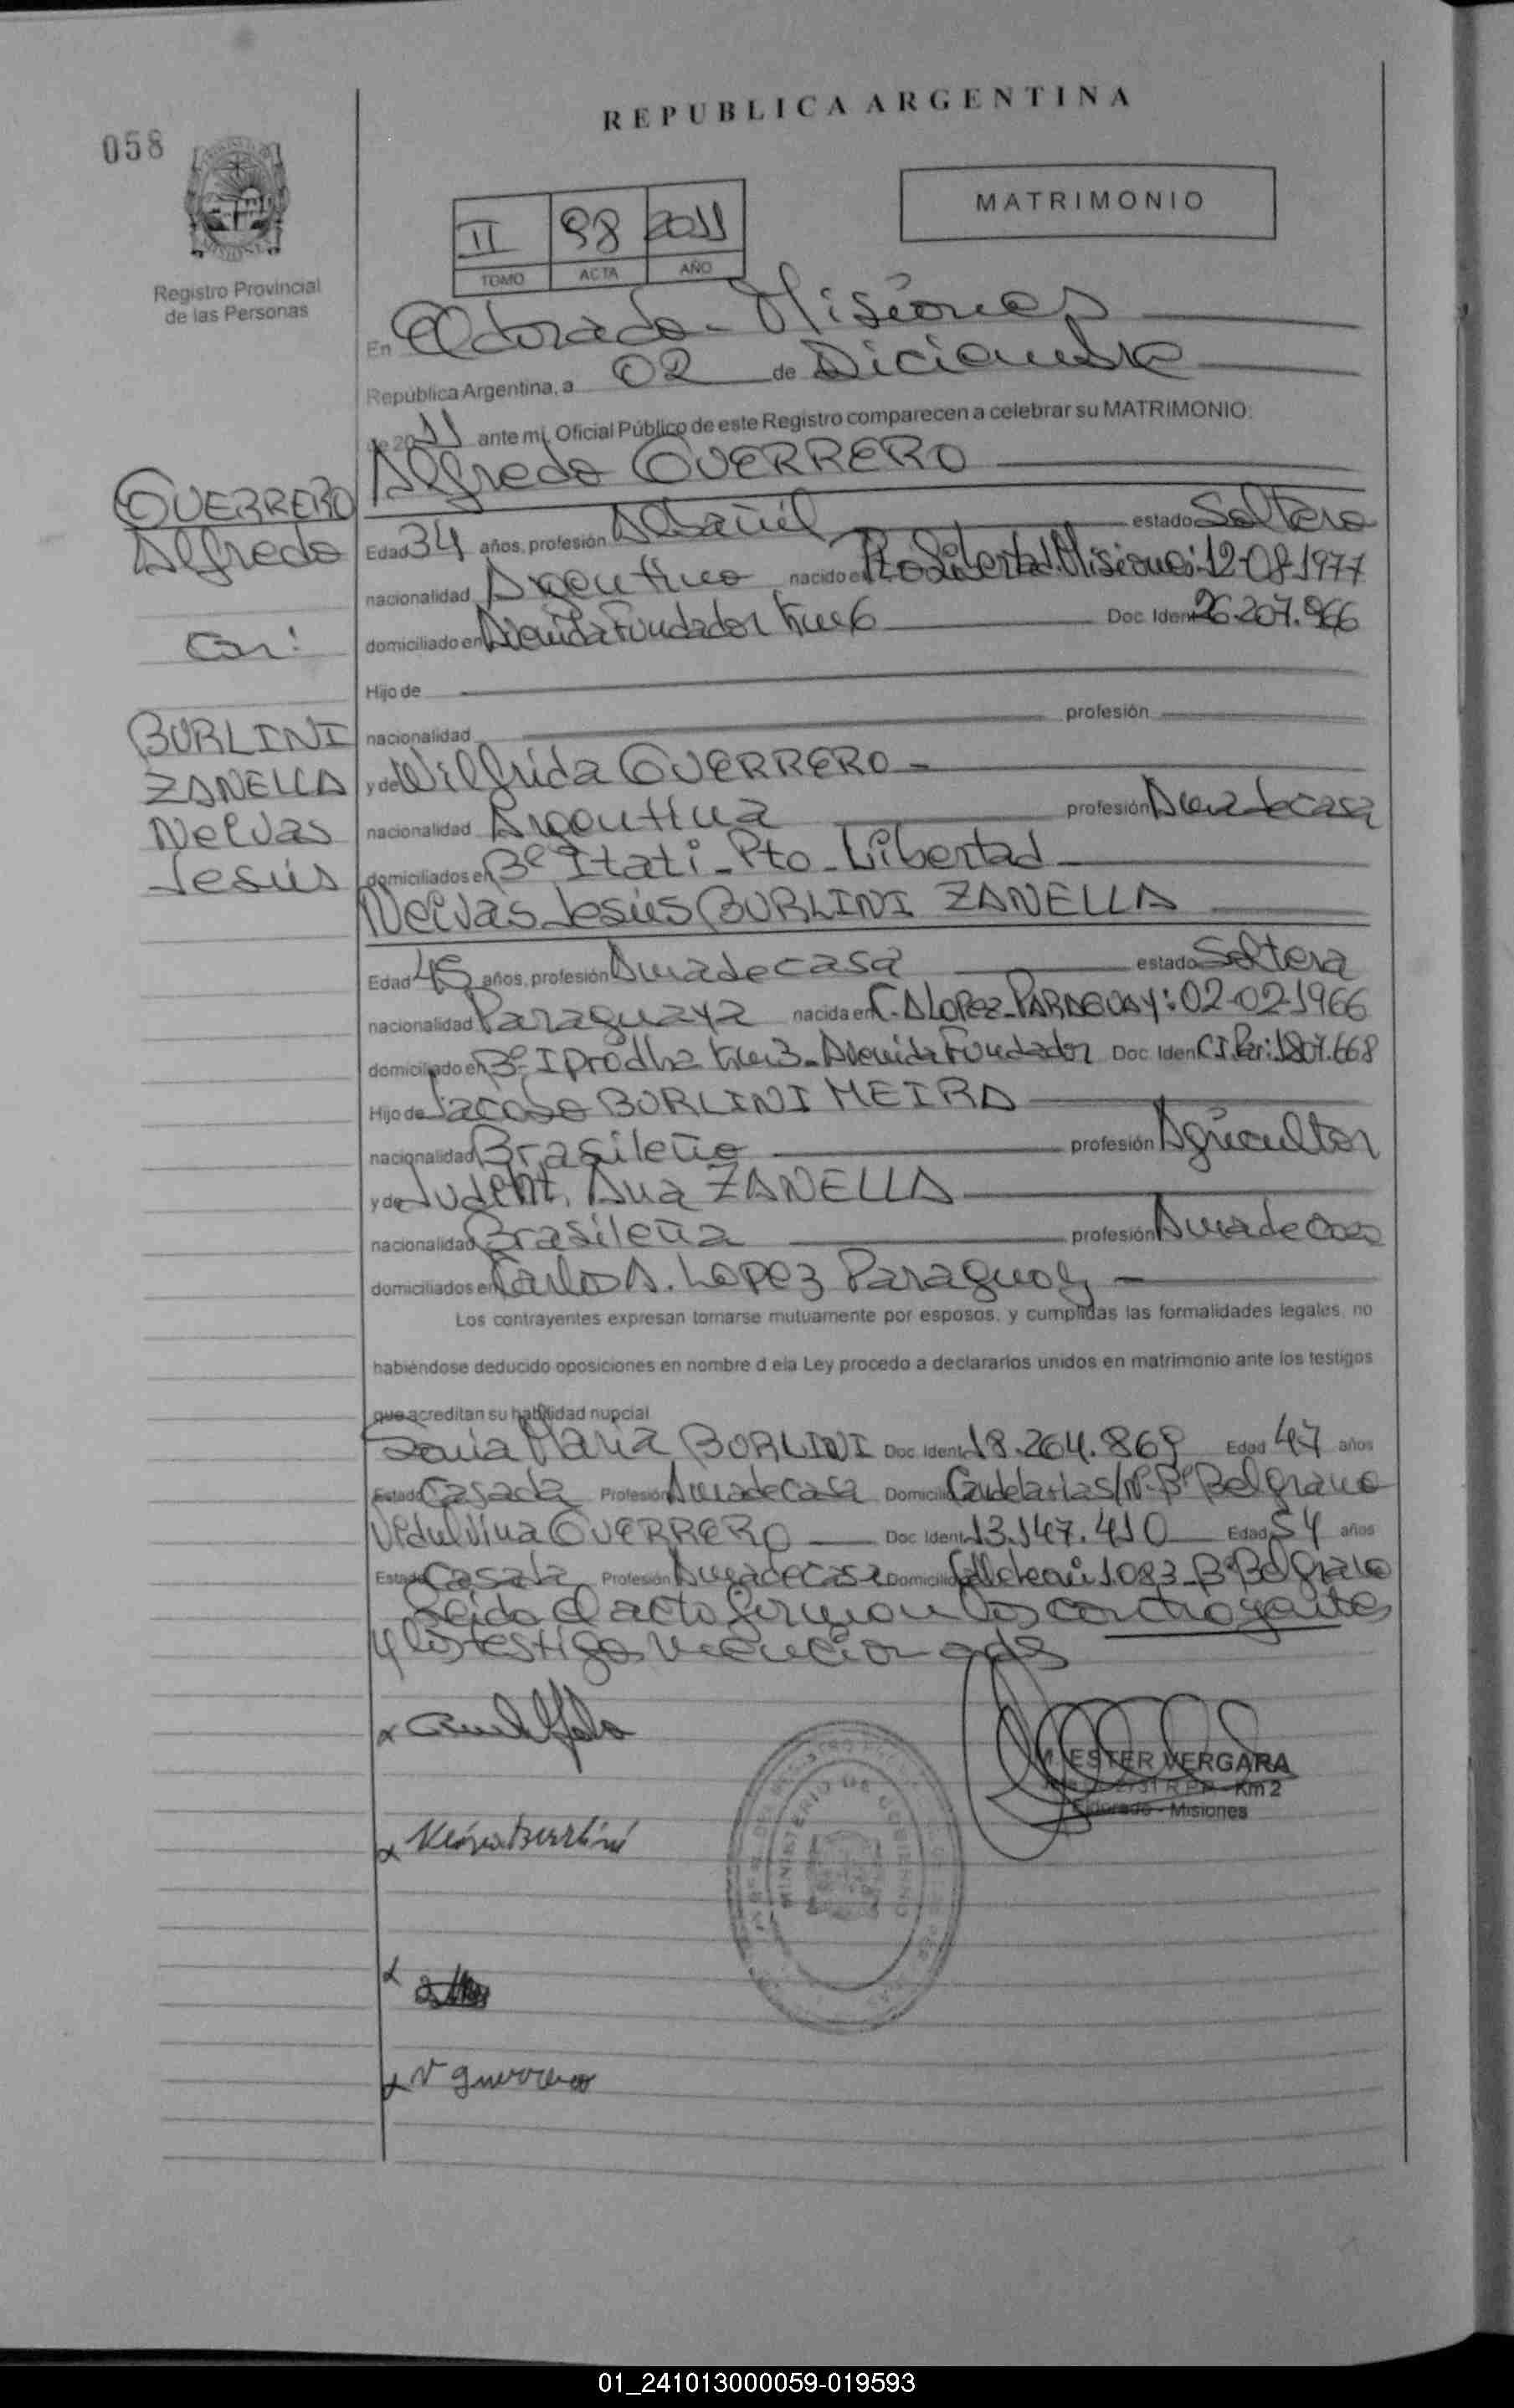 REPUBLICA ARGENTINA
058
MATRIMONIO
II 98 2011
TOMO ACTA AÑO
Registro Provincial
de las Personas
En Eldorado - Misiones
República Argentina, a 02 de Diciembre
de 2011 ante mi, Oficial Público de este Registro comparecen a celebrar su MATRIMONIO:
Alfredo GUERRERO
GUERRERO
Alfredo
Con:
BURLINI
ZANELLA
Neivas
Jesús
Edad 34 años, profesión Albañil estado Soltero
nacionalidad Argentino nacido en Pto Libertad. Misiones: 12-08-1977
domiciliado en Avenida Fundador km 6 Doc. Ident. 26.207.966
Hijo de
nacionalidad profesión
y de Wilfrida GUERRERO -
nacionalidad Argentina profesión Ama de casa
domiciliados en Bº Itati - Pto - Libertad
Neivas Jesús BURLINI ZANELLA
Edad 45 años, profesión Ama de casa estado Soltera
nacionalidad Paraguaya nacida en C. A Lopez - PARAGUAY: 02-02-1966
domiciliado en Bº Iprodha km 3 - Avenida Fundador Doc. Ident. C.I. Par: 1.807.668
Hijo de Jacobo BURLINI MEIRA
nacionalidad Brasileño profesión Agricultor
y de Ana ZANELLA
nacionalidad Brasileña profesión Ama de casa
domiciliados en Carlos A. Lopez Paraguay -
Los contrayentes expresan tomarse mutuamente por esposos, y cumplidas las formalidades legales, no
habiéndose deducido oposiciones en nombre d ela Ley procedo a declararlos unidos en matrimonio ante los testigos
que acreditan su habilidad nupcial
Sonia Maria BURLINI Doc. Ident. 18.264.869 Edad 47 años
Estado Casada Profesión Ama de casa Domicilio Candelaria s/nº. Bº Belgrano
GUERRERO Doc. Ident. 13.147.410 Edad 54 años
Estado Casada Profesión Ama de casa Domicilio 1.083 - Bº Belgrano
Leido el acto firman los contrayentes
y los testigos mencionados
M. ESTER VERGARA
R.P.P. - Km 2
Eldorado - Misiones
MINISTERIO DE GOBIERNO
V guerrero
01_241013000059-019593